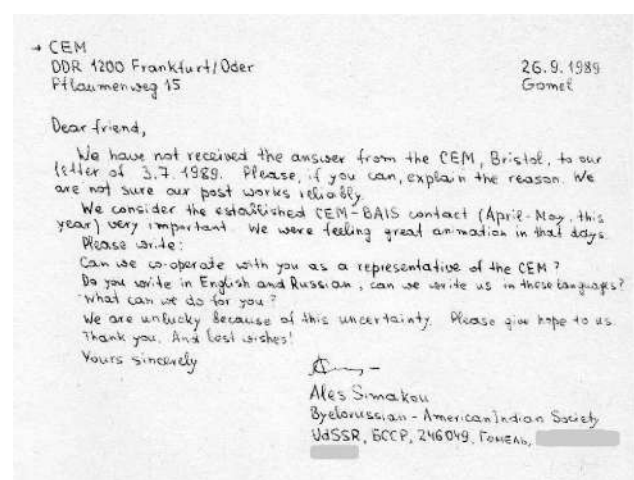 → CEM
DDR 1200 Frankfurt/Oder
Pflaumenweg 15
26.9.1989
Gomel
Dear friend,
We have not received the answer from the CEM, Bristol, to our
letter of 3.7.1989. Please, if you can, explain the reason. We
are not sure our post works reliably.
We consider the established CEM-BAIS contact (April-May, this
year) very important. We were feeling great animation in that days.
Please write:
Can we co-operate with you as a representative of the CEM?
Do you write in English and Russian, can we write us in these languages?
What can we do for you?
We are unlucky because of this uncertainty. Please give hope to us.
Thank you. And best wishes!
Yours sincerely
Ales Simakou
Byelorussian-American Indian Society
UdSSR, БССР, 246049, Гомель,